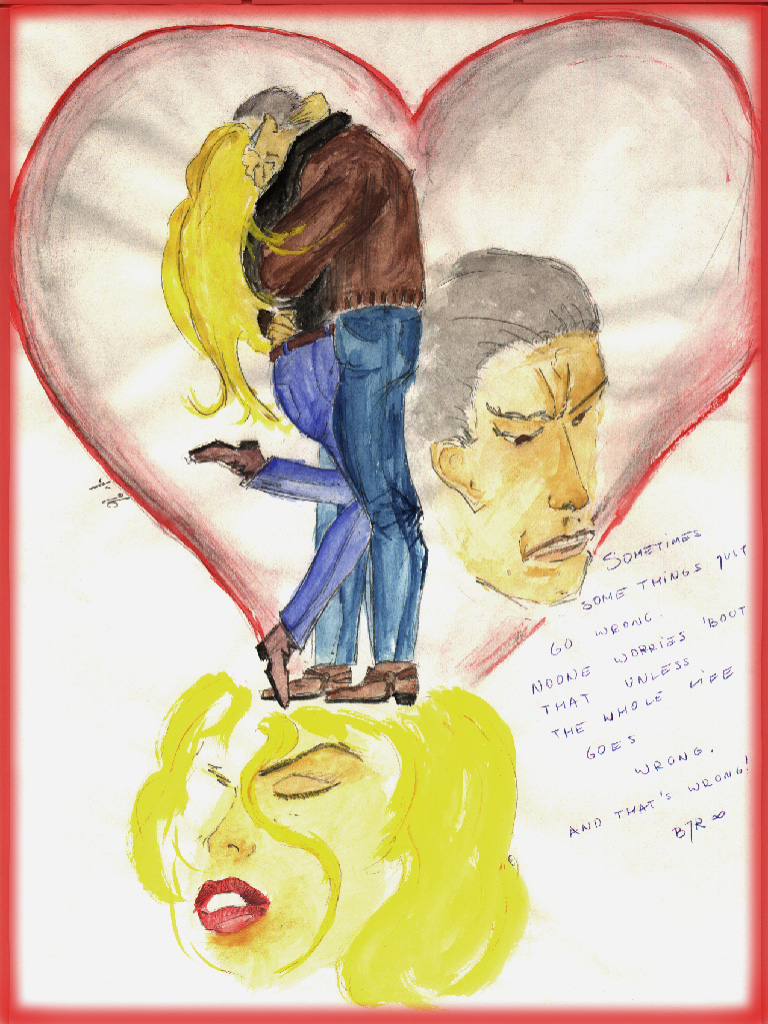 SOMETIMES
SOME THINGS JUST
GO WRONG.
NOONE WORRIES 'BOUT
THAT UNLESS
THE WHOLE LIFE
GOES
WRONG.
AND THAT'S WRONG!